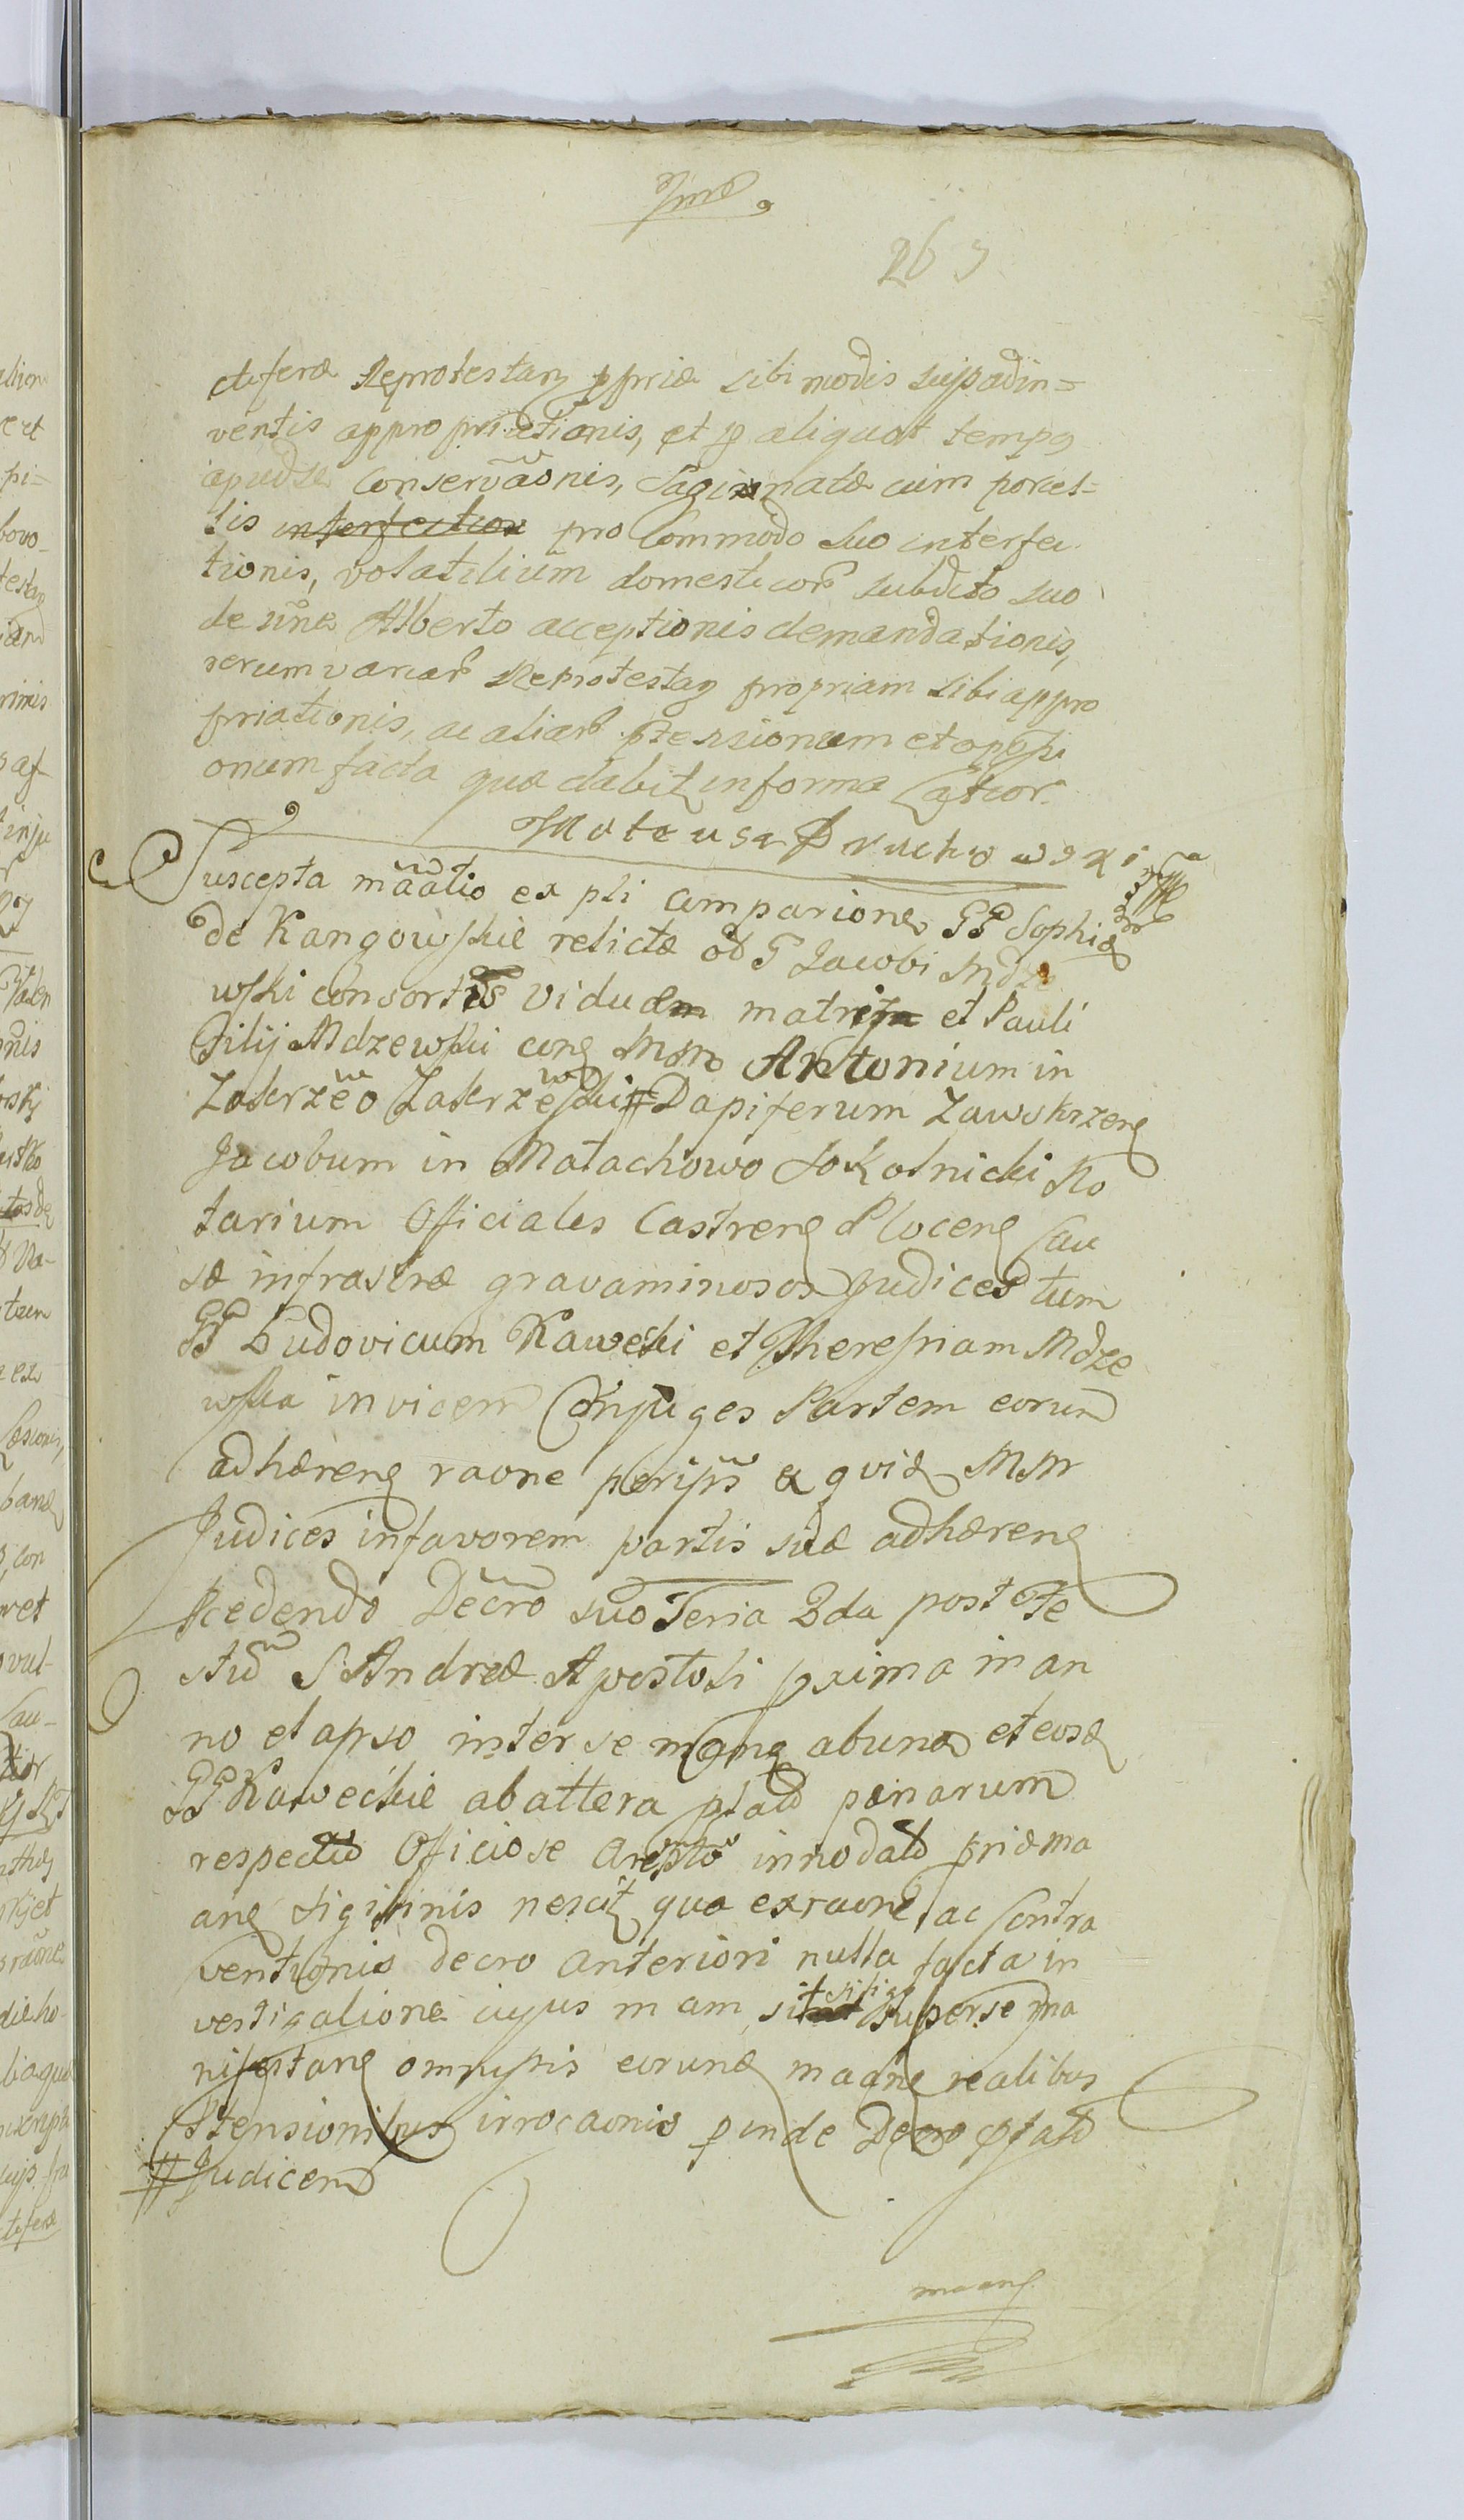 263
ctiferæ Reprotestanʒ ppriæ sibi modis supadin=
ventis appropriationis, et p aliquot tempg
apud se Conservãonis, Saginnatæ cum porcel=
lis interfection pro Commodo suo interfec
tionis, volatilium domesticor subdito suo
de nñe Alberto acceptionis demandationis,
rerum variar Reprotestanʒ propriam sibi appro
priationis, ac aliar ptensionum et oppressi
onum facta qua dabit in forma
Mateusz Bruchowski
Suscepta mããtio ex pti Comparione GG Sophiæ
de Kangowskie relictæ od G Jacobi Mdze
wski consortis viduæ matris et Pauli
Filij Mdzewski cong Mgm Antonium in
Zakrzewo Zakrzewski # Dapiferum Zawskrzeng
Jacobum in Małachowo Sokolnicki No
tarium Officiales Castreng Ploceng Cau
sæ infrascræ gravaminosos Judices tum
GG Ludovicum Kawecki et Theresiam Mdze
wska invicem Conjuges Partem eorum
adhæreng raone perips ex quia MM
Judices in favorem partis suæ adhæreng
Pcedendo Decro suo Feria 2da post Fe
stu S Andreæ Apostoli pxima in an
no elapso inter se mang ab una et eosd
GG Kaweckie ab altera ptato pænarum
respectu Officiose innodato
ang sigillinis nescit qua ex raone, ac Contra
ventionis decro anteriori nulla facta in
vestigatione cujus in am, sit superse ma
nifestang omnipsis eorund maang realibus
Ptensionibus irrocaonis pinde Decro ptato
# Judicem
maang